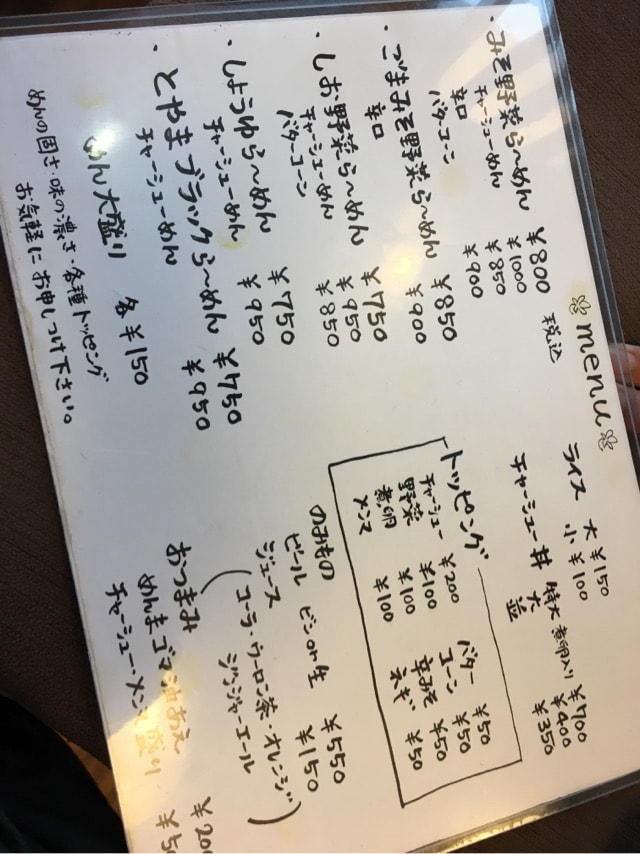 menu
税込
みそ野菜ら〜めん ¥800
チャーシューめん ¥1000
辛口 ¥850
コーンバター ¥900
ごまみそ野菜ら〜めん ¥850
辛口 ¥900
しお野菜ら〜めん ¥750
チャーシューめん ¥950
コーンバター ¥850
しょうゆら〜めん ¥750
チャーシューめん ¥950
とやまブラックら〜めん ¥750
チャーシューめん ¥950
めん大盛り 各¥150
めんの固さ・味の濃さ・各種トッピング
お気軽にお申しつけ下さい。
ライス 大 ¥150
小 ¥100
チャーシュー丼
特大 ¥700
¥400
¥350
トッピング
チャーシュー ¥200 バター ¥50
野菜 ¥100 コーン ¥50
¥100 ¥50
メンマ ¥100 ねぎ ¥50
のみもの
ビール ビン or 生 ¥550
ジュース ¥150
(コーラ・ウーロン茶・オレンジ
ジンジャーエール)
おつまみ
めんまごま油あえ ¥200
チャーシュー・メンマ盛り